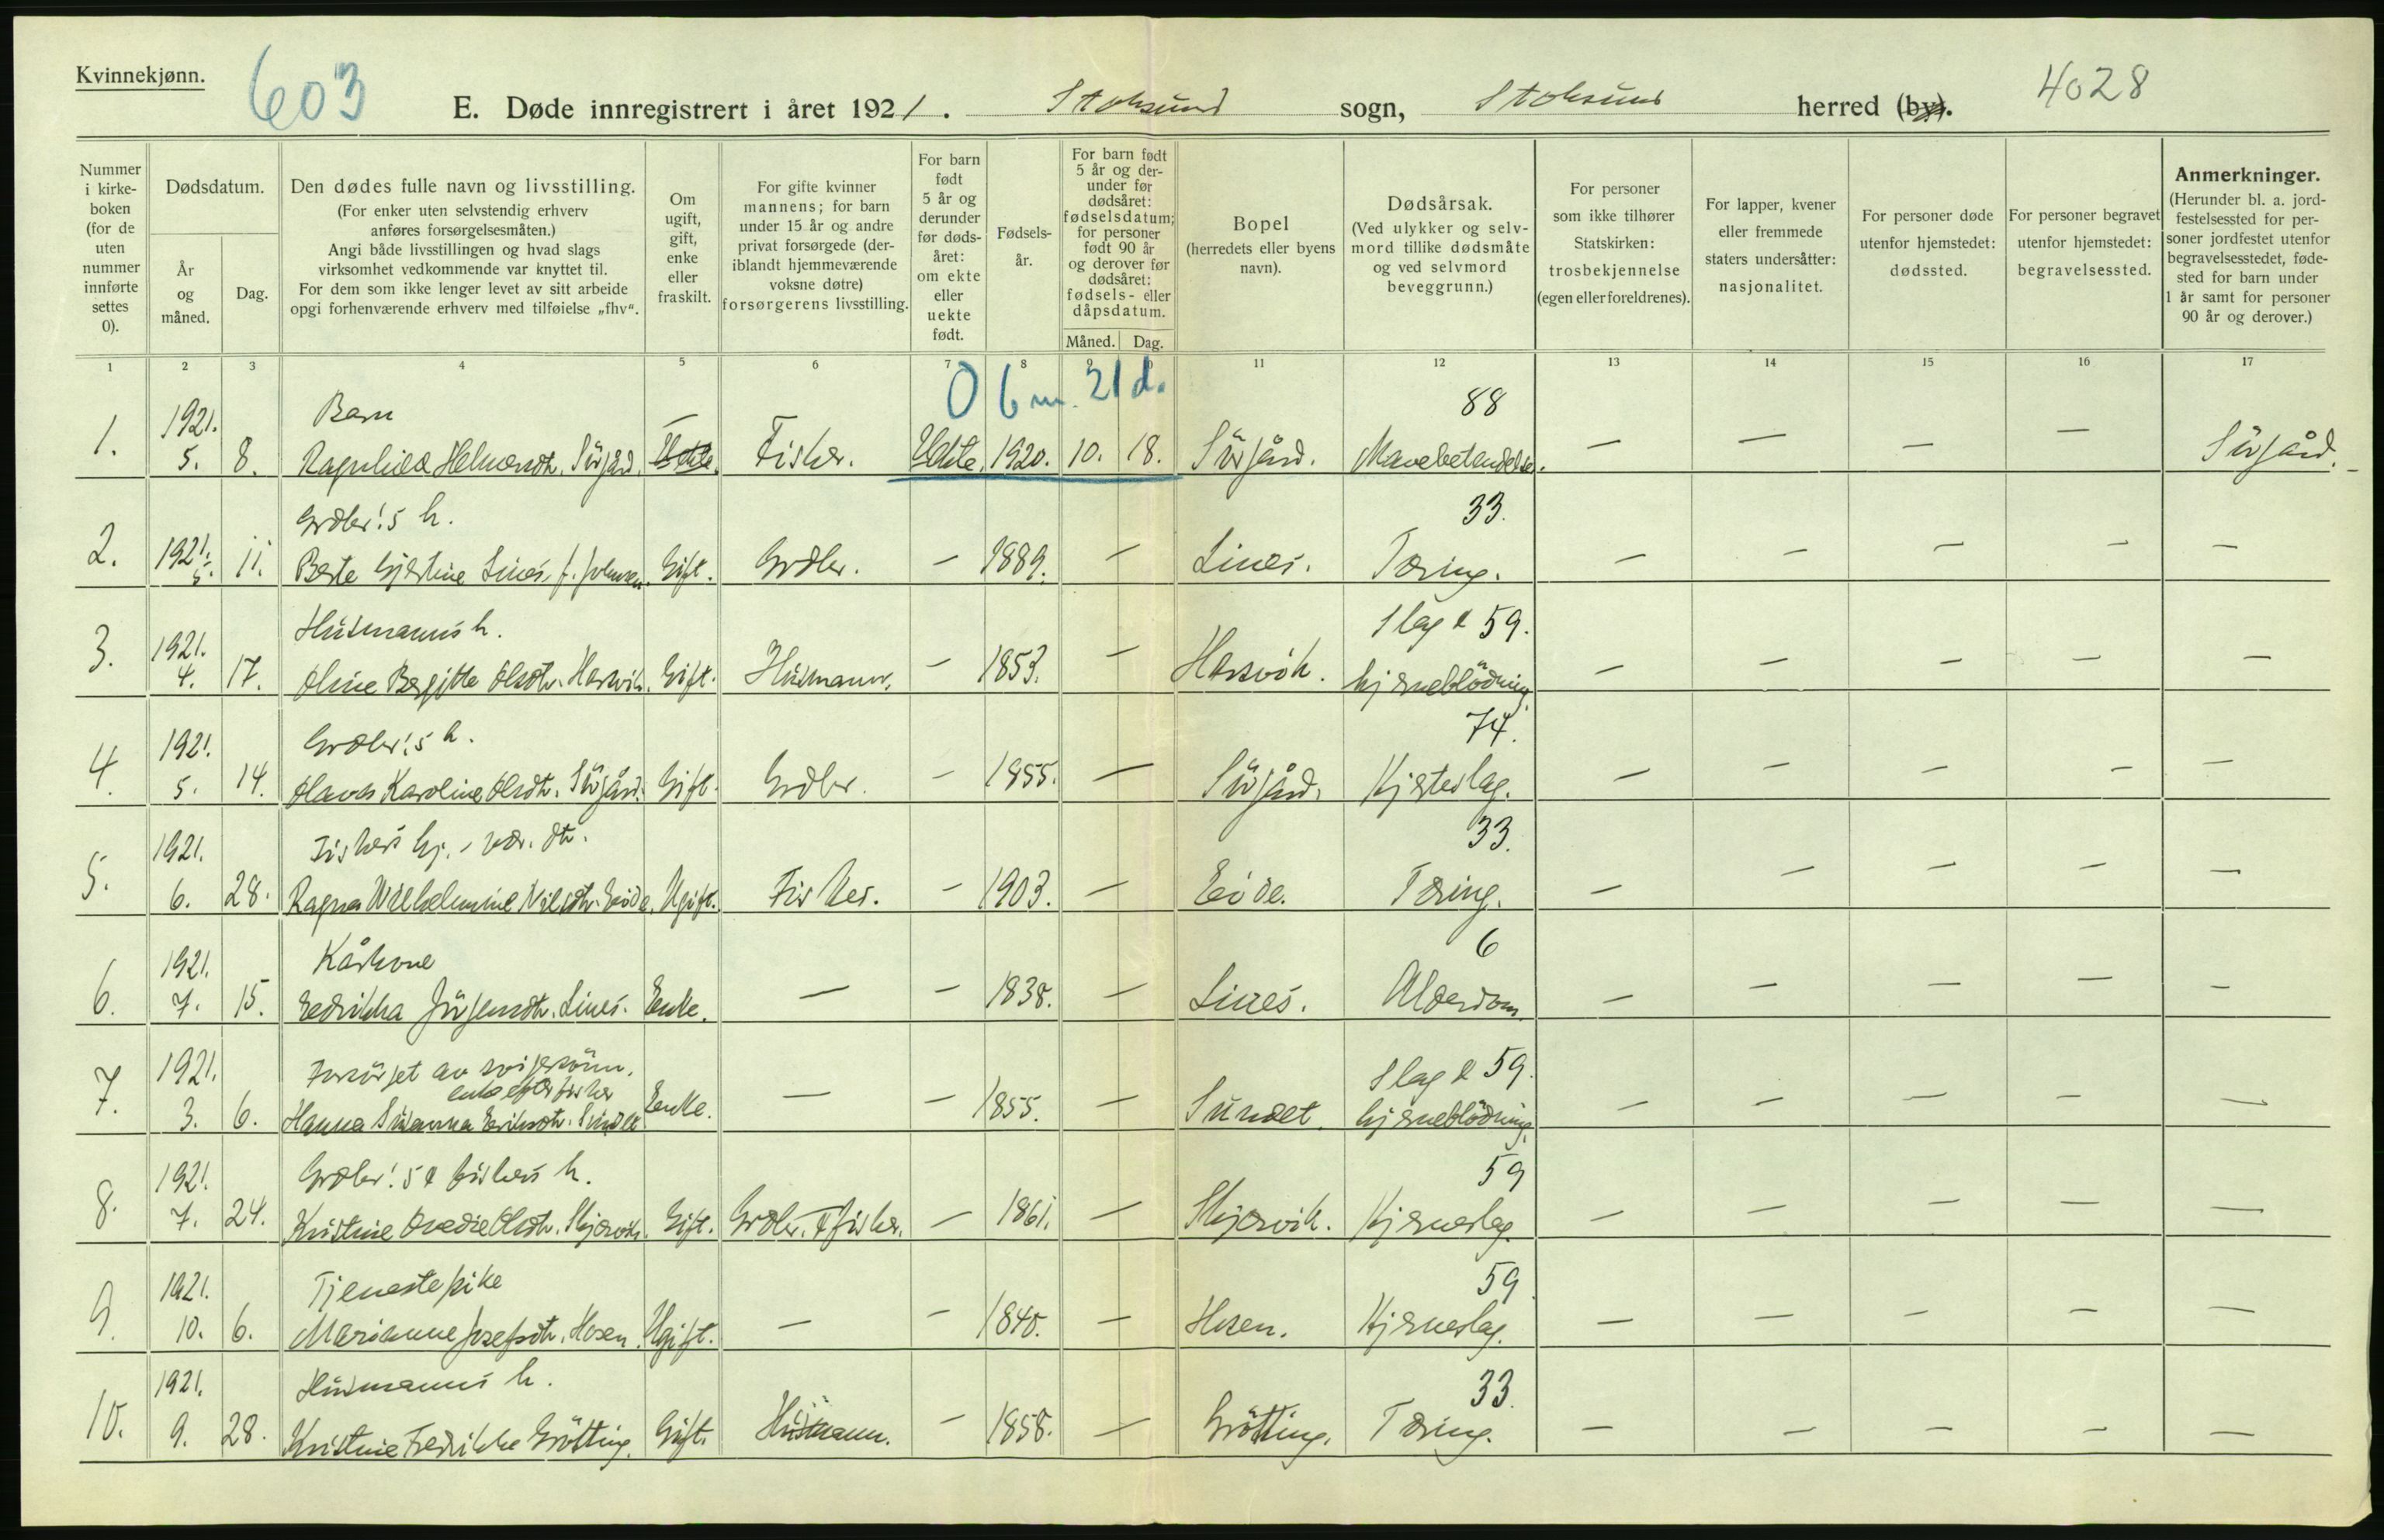 Kvinnekjønn.
603
4028
E. Døde innregistrert i året 1921. Stoksund sogn, Stoksund herred (by).
Nummer i kirke-boken (for de uten nummer innførte settes 0).
Dødsdatum.
År og måned.
Dag.
Den dødes fulle navn og livsstilling.
(For enker uten selvstendig erhverv anføres forsørgelsesmåten.)
Angi både livsstillingen og hvad slags virksomhet vedkommende var knyttet til.
For dem som ikke lenger levet av sitt arbeide opgi forhenværende erhverv med tilføielse „fhv“.
Om ugift, gift, enke eller fraskilt.
For gifte kvinner mannens; for barn under 15 år og andre privat forsørgede (deriblandt hjemmeværende voksne døtre) forsørgerens livsstilling.
For barn født 5 år og derunder før døds-året: om ekte eller uekte født.
Fødsels-år.
For barn født 5 år og der-under før dødsåret: fødselsdatum; for personer født 90 år og derover før dødsåret: fødsels- eller dåpsdatum.
Måned. Dag.
Bopel
(herredets eller byens navn).
Dødsårsak.
(Ved ulykker og selv-mord tillike dødsmåte og ved selvmord beveggrunn.)
For personer som ikke tilhører Statskirken: trosbekjennelse (egen eller foreldrenes).
For lapper, kvener eller fremmede staters undersåtter: nasjonalitet.
For personer døde utenfor hjemstedet: dødssted.
For personer begravet utenfor hjemstedet: begravelsessted.
Anmerkninger.
(Herunder bl. a. jord-festelsessted for per-soner jordfestet utenfor begravelsesstedet, føde-sted for barn under 1 år samt for personer 90 år og derover.)
1 2 3 4 5 6 7 8 9 11 12 13 14 15 16 17
0 6 m. 21 d.
1921. Barn — 88
1. 5. 8. Ragnhild Helmersdtr. Sörgård. Fisker. Uekte. 1920. 10. 18. Sörgård. Mavebetendelse. — — — — Sörgård.
Grdbr.'s h. 33.
2. 1921. 5. 11. Berte Gjertine Lines f. Johnsen. Gift. Grdbr. — 1889. — Lines. Tæring. — — — — —
1921. Husmanns h. Slag & 59.
3. 4. 17. Oline Bergitte Olsdtr. Harsvik. Gift. Husmann. — 1853. — Harsvik. hjerneblödning. — — — — —
1921. Grdbr.'s h. 74.
4. 5. 14. Olava Karoline Olsdtr. Sörgård. Gift. Grdbr. — 1855. — Sörgård. Hjerteslag. — — — — —
1921. Fiskers hj.-vær. dtr. 33.
5. 6. 28. Ragna Wilhelmine Nilsdtr. Eide. Ugift. Fisker. — 1903. — Eide. Tæring. — — — — —
1921. Kårkone 6
6. 7. 15. Fredrikka Jörgensdtr. Lines. Enke. — — 1838. — Lines. Alderdom. — — — — —
1921. Forsörget av svigersönn. Slag & 59.
enke efter fisker
7. 3. 6. Hanna Susanna Eriksdtr. Sundet Enke. — — 1855. — Sundet. hjerneblödning. — — — — —
1921. Grdbr.'s & fiskers h. 59
8. 7. 24. Kristine Ovedie Olsdtr. Skjervik. Gift. Grdbr. & fisker. — 1861. — Skjervik. Hjerneslag. — — — — —
1921. Tjenestepike 59
9. 10. 6. Marianne Josefsdtr. Hosen. Ugift. — — 1840. — Hosen. Hjerneslag. — — — — —
1921. Husmanns h. 33.
10. 9. 28. Kristine Fredrikke Grötting. Gift. Husmann. — 1858. — Grötting. Tæring. — — — — —